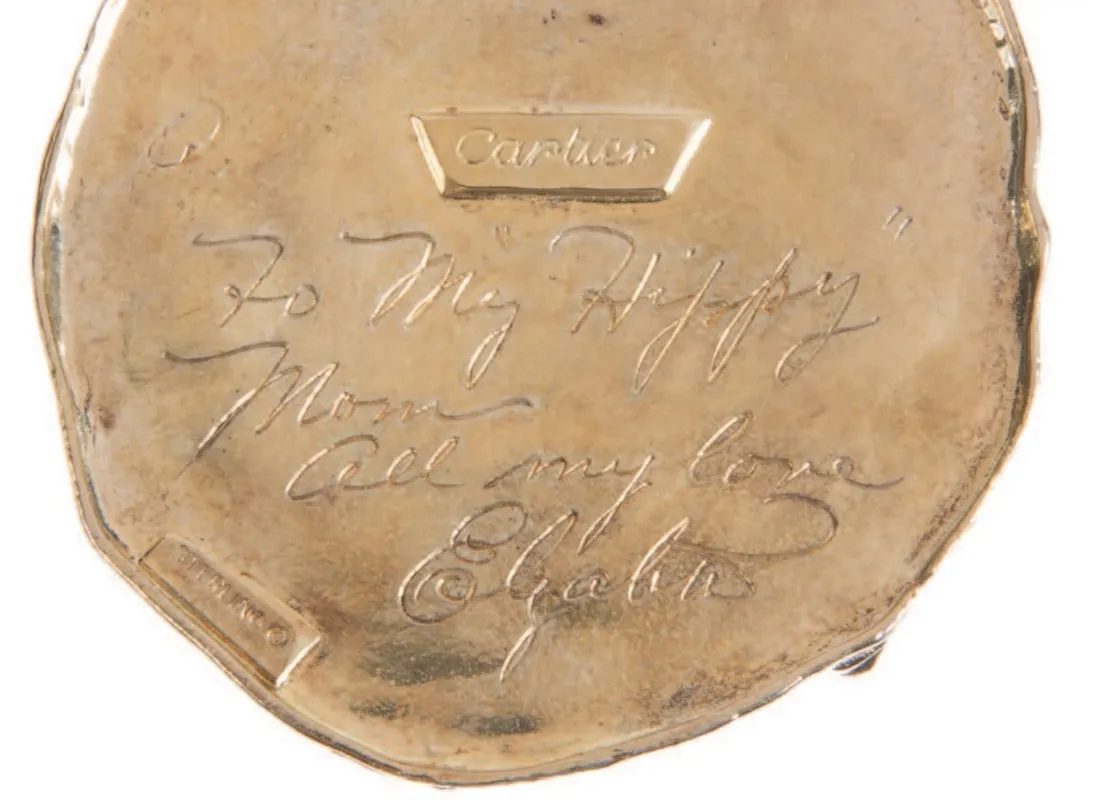 Cartier
To My "Hippy"
Mom
all my love